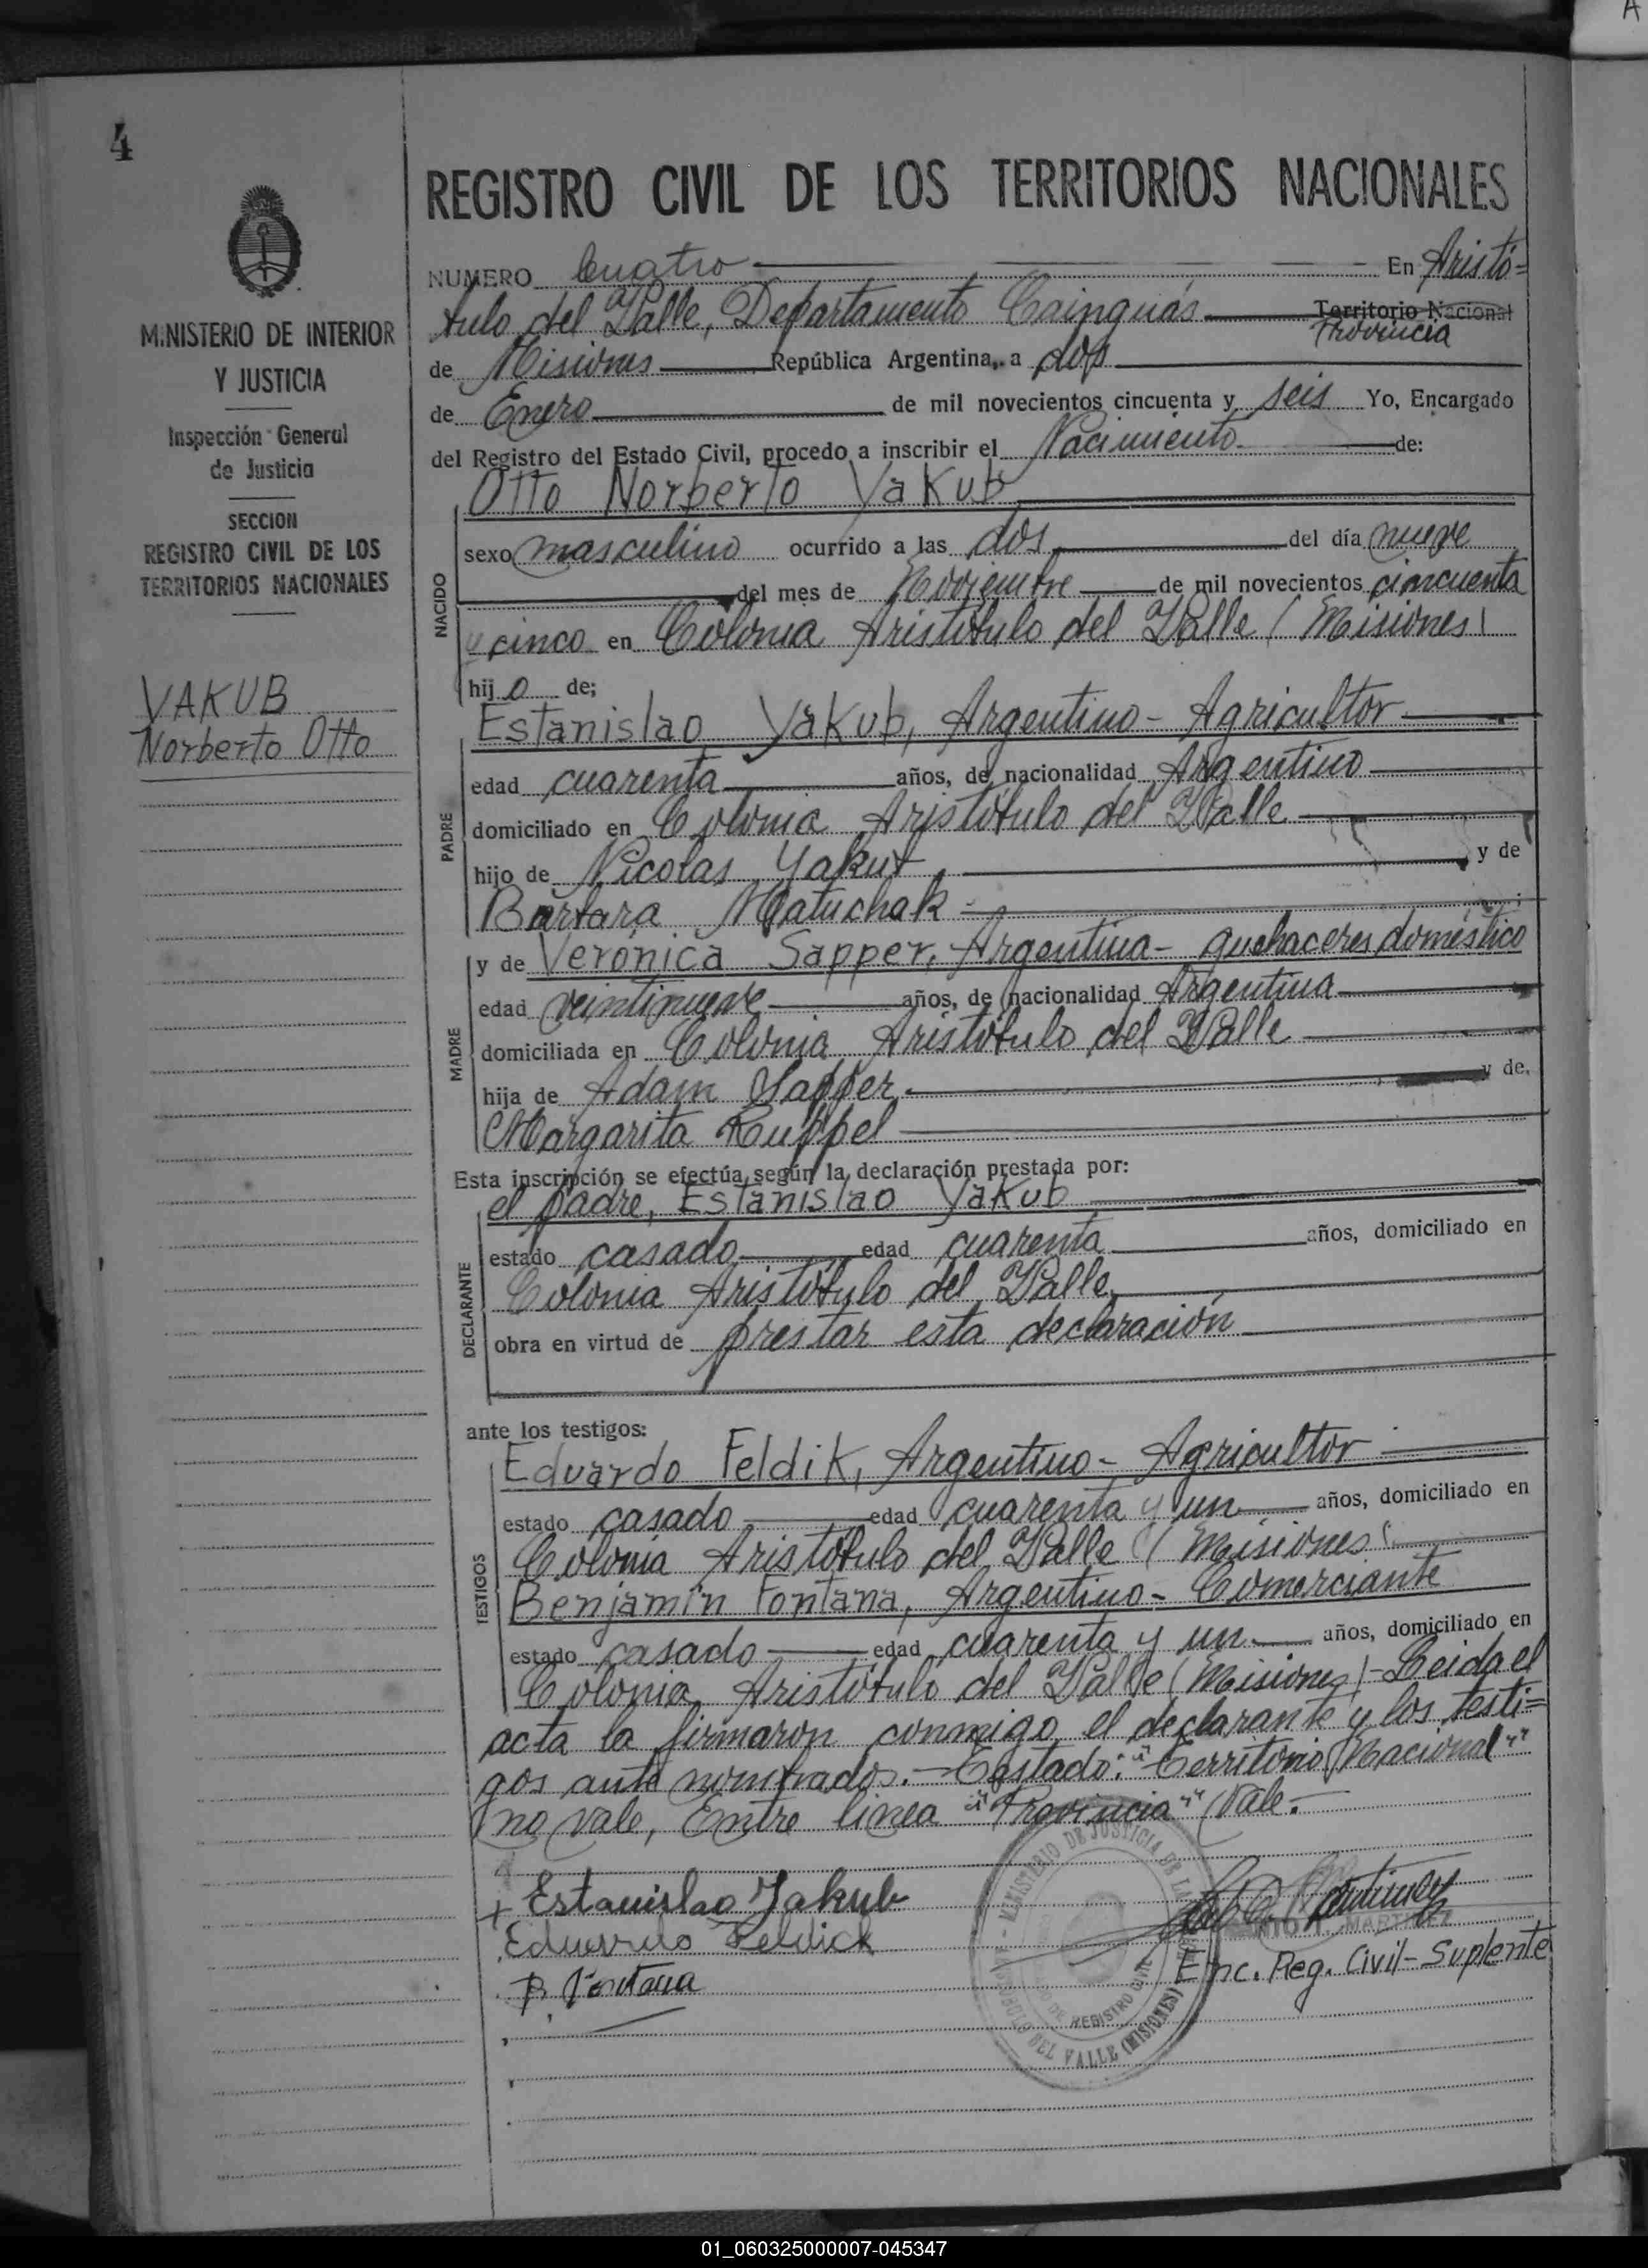 4
REGISTRO CIVIL DE LOS TERRITORIOS NACIONALES
MINISTERIO DE INTERIOR
Y JUSTICIA
Inspección General
de Justicia
SECCION
REGISTRO CIVIL DE LOS
TERRITORIOS NACIONALES
YAKUB
Norberto Otto
NUMERO Cuatro En Aristó=
tulo del Valle, Departamento Cainguás Territorio Nacional
Provincia
de Misiones República Argentina, a dos
de Enero de mil novecientos cincuenta y seis Yo, Encargado
del Registro del Estado Civil, procedo a inscribir el Nacimiento de:
Otto Norberto Yakub
NACIDO
sexo masculino ocurrido a las dos del día nueve
del mes de Noviembre de mil novecientos cincuenta
y cinco en Colonia Aristóbulo del Valle (Misiones)
hijo de;
Estanislao Yakub, Argentino - Agricultor
PADRE
edad cuarenta años, de nacionalidad Argentino
domiciliado en Colonia Aristóbulo del Valle
hijo de Nicolas Yakub y de
Barbara Matuchak
y de Veronica Sapper, Argentina - quehaceres doméstico
MADRE
edad veintinueve años, de nacionalidad Argentina
domiciliada en Colonia Aristóbulo del Valle
hija de Adam Sapper y de
Margarita Ruppel
Esta inscripción se efectúa según la declaración prestada por:
el padre, Estanislao Yakub
DECLARANTE
estado casado edad cuarenta años, domiciliado en
Colonia Aristóbulo del Valle
obra en virtud de prestar esta declaración
ante los testigos:
Eduardo Feldik, Argentino - Agricultor
TESTIGOS
estado casado edad cuarenta y un años, domiciliado en
Colonia Aristóbulo del Valle (Misiones)
Benjamin Fontana, Argentino - Comerciante
estado casado edad cuarenta y un años, domiciliado en
Colonia Aristóbulo del Valle (Misiones) - Leida el
acta la firmaron conmigo el declarante y los testi=
gos ante nombrados. - Testado: "Territorio Nacional"
no vale, Entre linea "Provincia" Vale.-
+ Estanislao Yakub
Eduardo Feldick
B. Fontana
MARTINEZ
Enc. Reg. Civil - Suplente
MINISTERIO DE JUSTICIA DE LA
REGISTRO CIVIL
DEL VALLE (MISIONES)
01_060325000007-045347